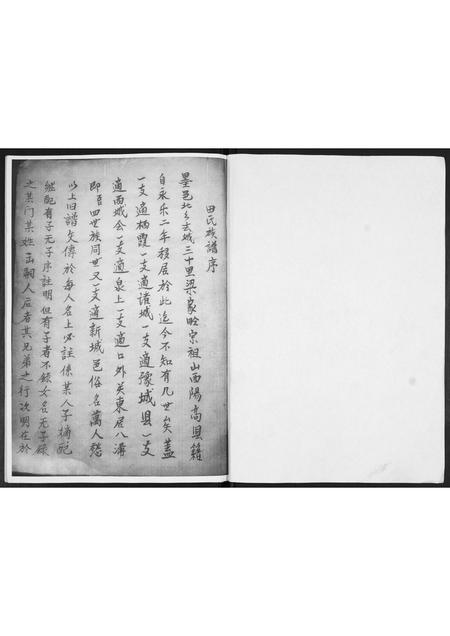 田氏族谱序
墨邑北乡去城三十里梁家疃宗祖山西阳高县籍
自永乐二年移居於此迄今不知有几世矣蓋
一支適栖霞一支適诸城一支適豫城县一支
適西城会一支適泉上一支適口外关東居八溝
即吾四世族同世又一支適新城邑俗名萬人愁
以上旧譜交傳於每人名上必註係某人子嫡配
继配有子无子序註明但有子者不録女名无子録
之某门某姓出嗣人后者其兄弟之行次明在於